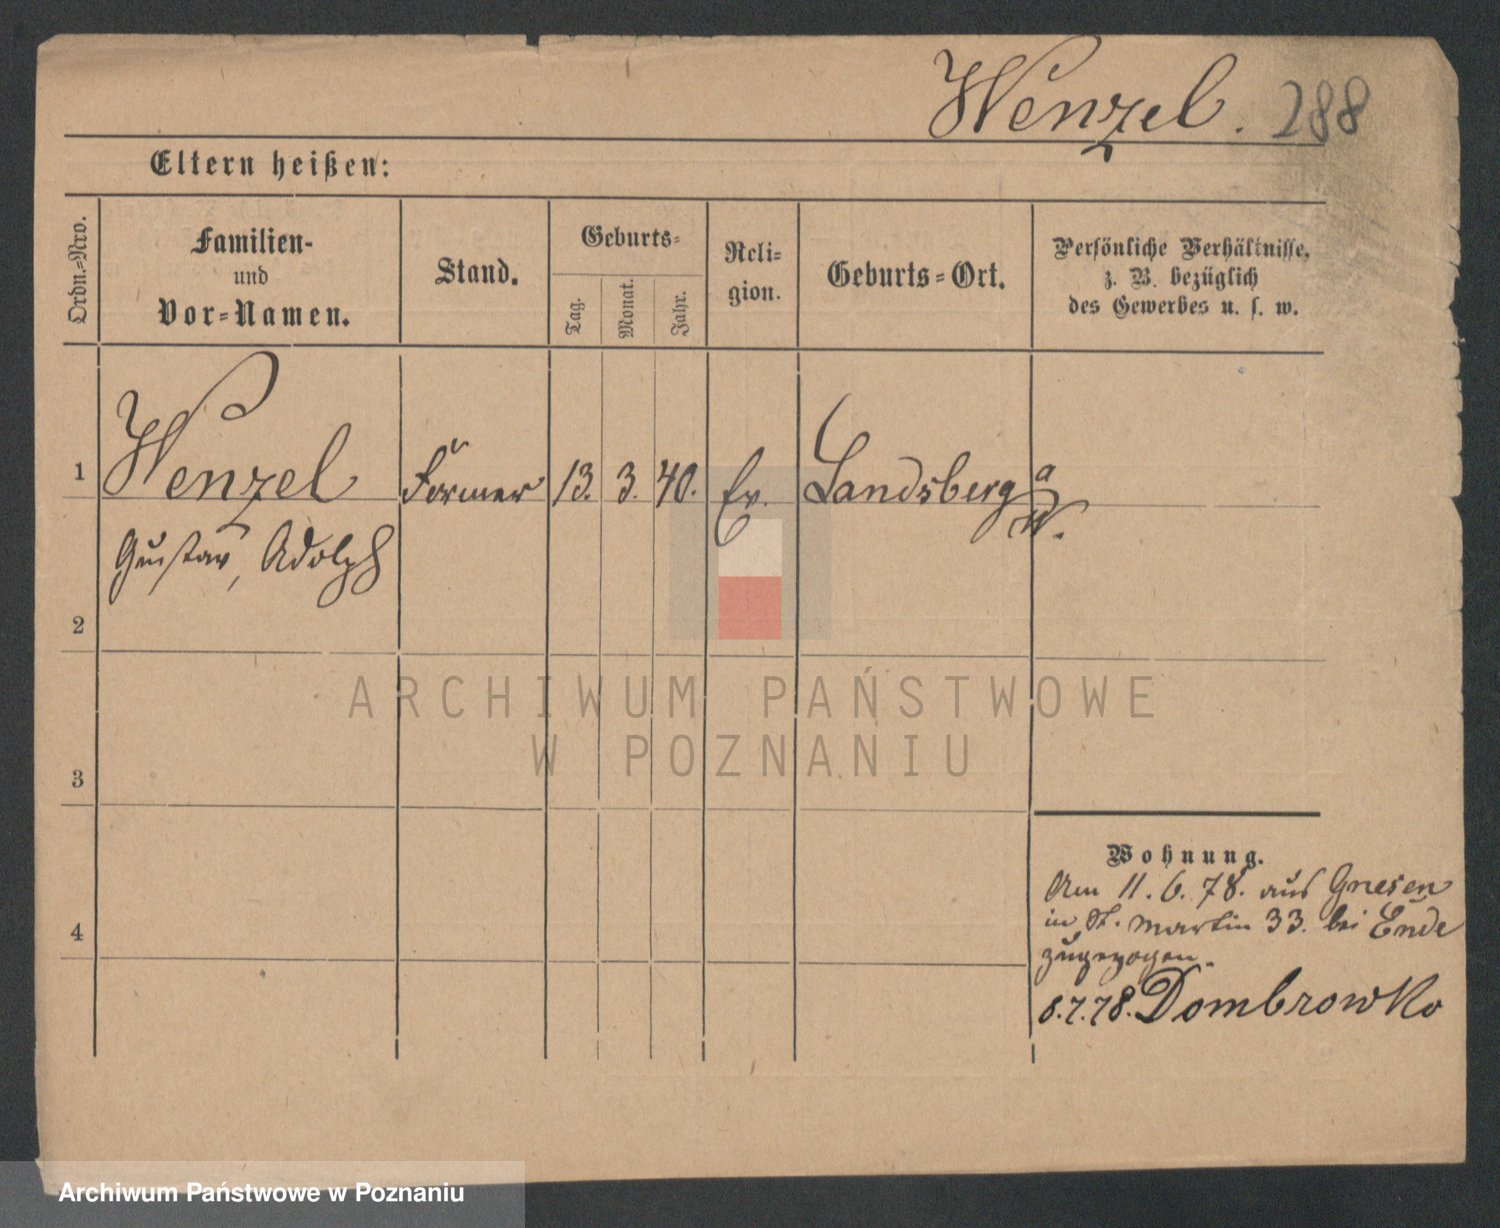 Wenzel. 288
Eltern heißen:
Ordn.=Nro.
Familien-
und
Vor=Namen.
Stand.
Geburts=
Tag.
Monat.
Jahr.
Reli=
gion.
Geburts=Ort.
Persönliche Verhältnisse,
z. B. bezüglich
des Gewerbes u. s. w.
1 Wenzel Former 13. 3. 40. Ev. Landsberg a
W.
Gustav, Adolph
2
3
4
Wohnung.
Am 11. 6. 78. aus Gnesen
in St. Martin 33. bei Ende
zugezogen.
8.7.78. Dombrowko
ARCHIWUM PAŃSTWOWE
W POZNANIU
Archiwum Państwowe w Poznaniu